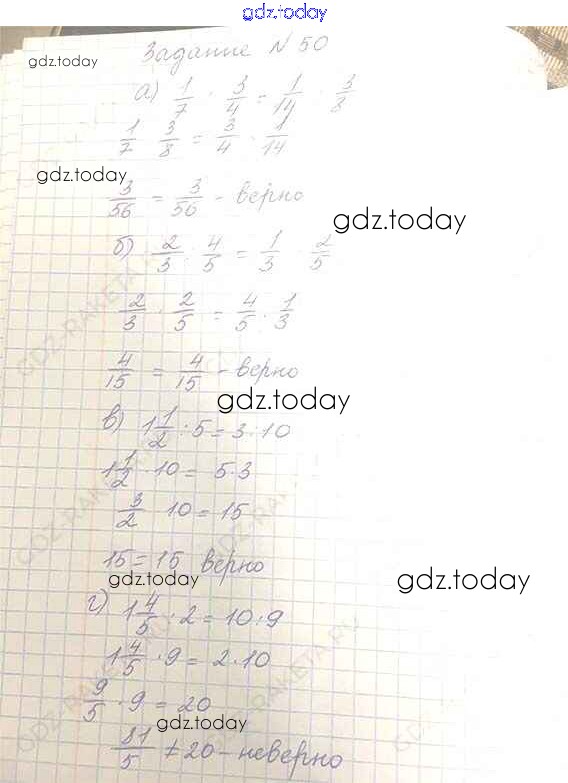 gdz.today
Задание N 50
gdz.today
а) 1/7 : 3/4 = 1/14 : 3/8
1/7 · 3/8 = 3/4 · 1/14
gdz.today
3/56 = 3/56 - верно
gdz.today
б) 2/3 : 4/5 = 1/3 : 2/5
2/3 · 2/5 = 4/5 · 1/3
4/15 = 4/15 - верно
gdz.today
в) 1 1/2 : 5 = 3 : 10
1 1/2 · 10 = 5·3
3/2 · 10 = 15
15 = 15 верно
gdz.today
gdz.today
г) 1 4/5 : 2 = 10 : 9
1 4/5 · 9 = 2·10
9/5 · 9 = 20
gdz.today
81/5 ≠ 20 - неверно
GDZ-RAKETA.RU
GDZ-RAKETA.RU
GDZ-RAKETA.RU